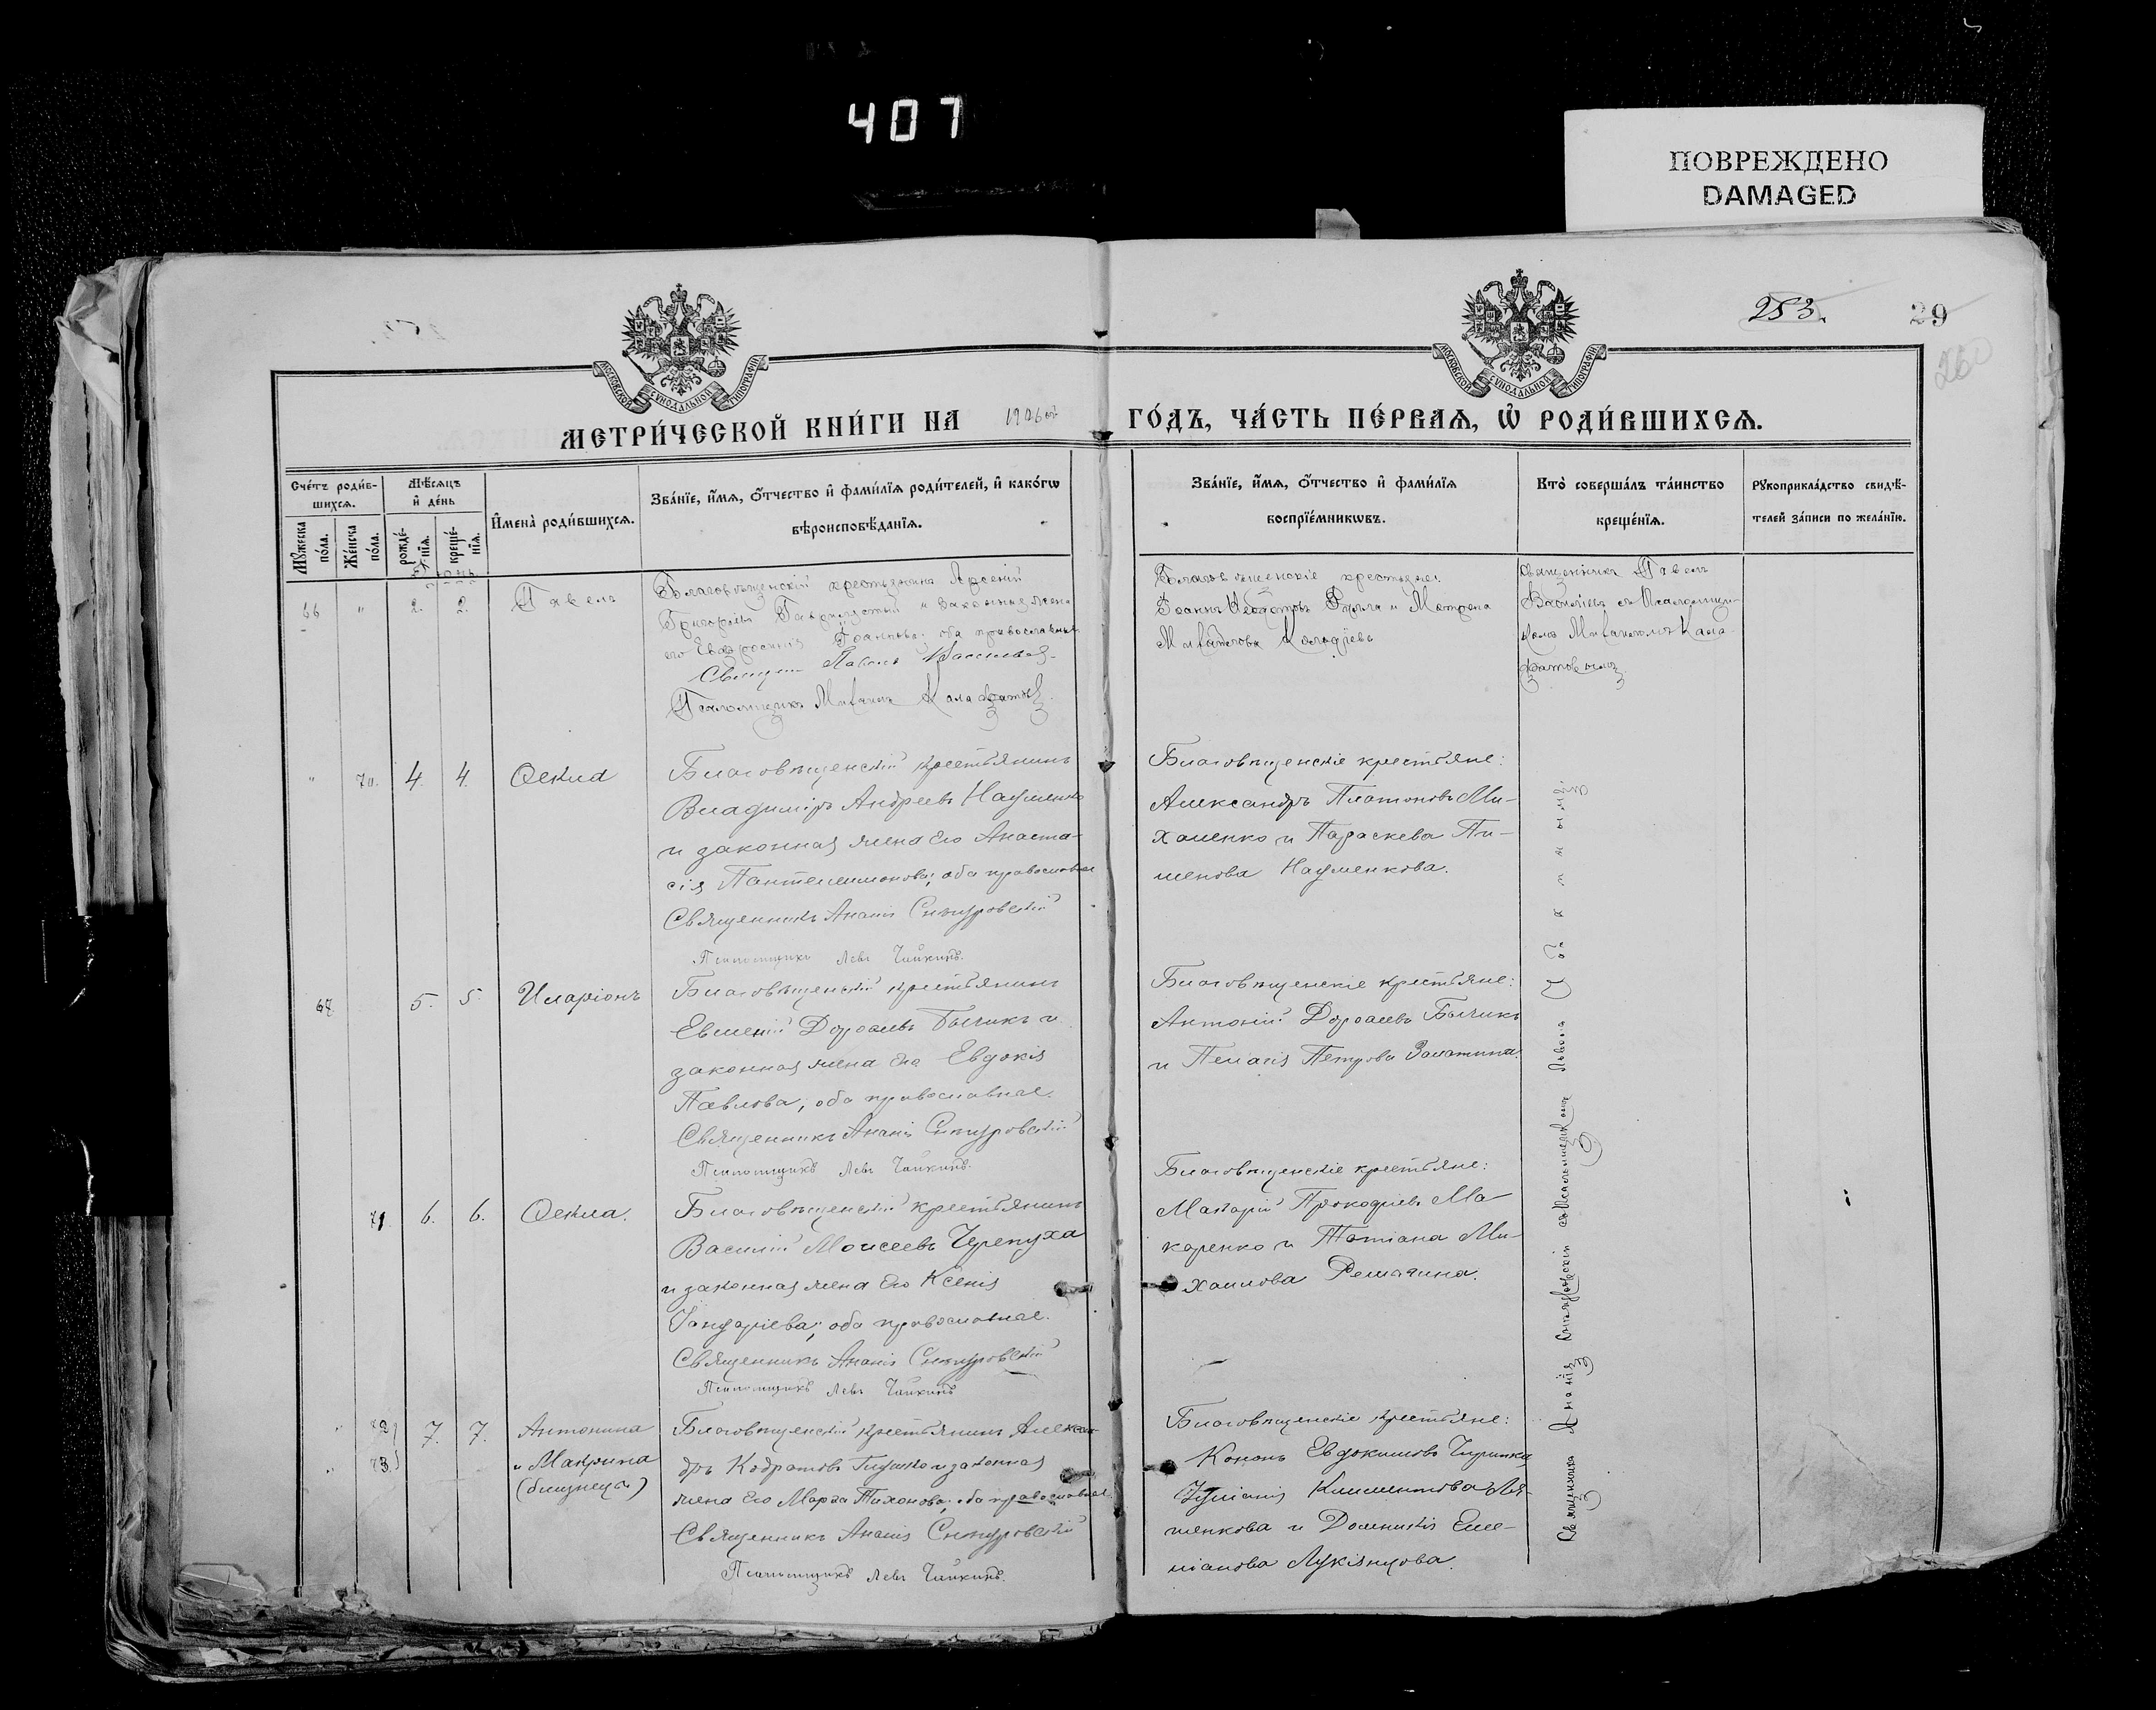 407
ПОВРЕЖДЕНО
DAMAGED
283.
29
260
МОСКОВСКОЙ СѴНОДАЛЬНОЙ ТИПОГРАФІИ
МОСКОВСКОЙ СѴНОДАЛЬНОЙ ТИПОГРАФІИ
МЕТРИ́ЧЕСКОЙ КНИ́ГИ НА 1906 ГО́ДЪ, ЧА́СТЬ ПЕ́РВАѦ, Ѡ РОДИ́ВШИХСѦ.
Сче́тъ роди́в-
шихсѧ.
Мꙋжеска
по́ла.
Же́нска
по́ла.
Мѣ́сѧцъ
и҆ де́нь
рожде́-
нїѧ.
креще́-
нїѧ.
И҆мена̀ роди́вшихсѧ.
Зва́нїе, и҆́мѧ, ѻ҆́тчество и҆ фами́лїѧ роди́телей, и҆ како́гѡ
вѣроисповѣ́данїѧ.
Зва́нїе, и҆́мѧ, ѻ҆́тчество и҆ фами́лїѧ
воспрїе́мникѡвъ.
Кто̀ соверша́лъ та́инство
креще́нїѧ.
Рꙋкоприкла́дство свидѣ́-
телей за́писи по жела́нїю.
66 " 2. 2. Павелъ
Благовѣщенскій крестьянинъ Арсеній
Григорьевъ и законная жена
его Евфросинія Іоаннова; оба православные
Священ Павелъ Васильев
Псаломщикъ Михаилъ Калафатовъ
Благовѣщенскіе крестьяне:
Іоаннъ и Матрона
Михайлова
священникъ Павелъ
Васильевъ съ Псаломщи-
комъ Михаиломъ Кала-
фатовымъ
" 70. 4. 4. Ѳекла
Благовѣщенскій крестьянинъ
Владиміръ Андреевъ Науменко
и законная жена его Анаста-
сія Пантелеимонова; оба православные
Священникъ Ананія Снѣгуровскій
Псаломщикъ Левъ Чайкинъ.
Благовѣщенскіе крестьяне:
Александръ Платоновъ Ми-
халенко и Параскева Пи-
менова Науменкова.
67. 5. 5. Иларіонъ
Благовѣщенскій крестьянинъ
Евмений Дороѳеевъ Бычикъ и
законная жена его Евдокія
Павлова; оба православные.
Священникъ Ананія Снѣгуровскій
Псаломщикъ Левъ Чайкинъ.
Благовѣщенскіе крестьяне:
Антоній Дороѳеевъ Бычикъ
и Пелагія Петрова
71. 6. 6. Ѳекла.
Благовѣщенскій крестьянинъ
Василій Моисеевъ Черепуха
и законная жена его Ксенія
оба православные.
Священникъ Ананія Снѣгуровскій
Псаломщикъ Левъ Чайкинъ
Благовѣщенскіе крестьяне:
Макарій Прокофіевъ Ма-
каренко и Татіана Ми-
хаилова
72 73 7. 7. Антонина
и Макрина
(близнецы)
Благовѣщенскій крестьянинъ Алексан-
дръ Кодратовъ и законная
жена его Марѳа Тихонова; оба православные
Священникъ Ананія Снѣгуровскій
Псаломщикъ Левъ Чайкинъ.
Благовѣщенскіе крестьяне:
Кононъ Евдокимовъ
Іуліанія Климентова Ля-
шенкова и Домникія Еме-
ліанова Лукіянцова.
Священникъ Ананія Снѣгуровскій съ Псаломщикомъ Львомъ Чайкинымъ